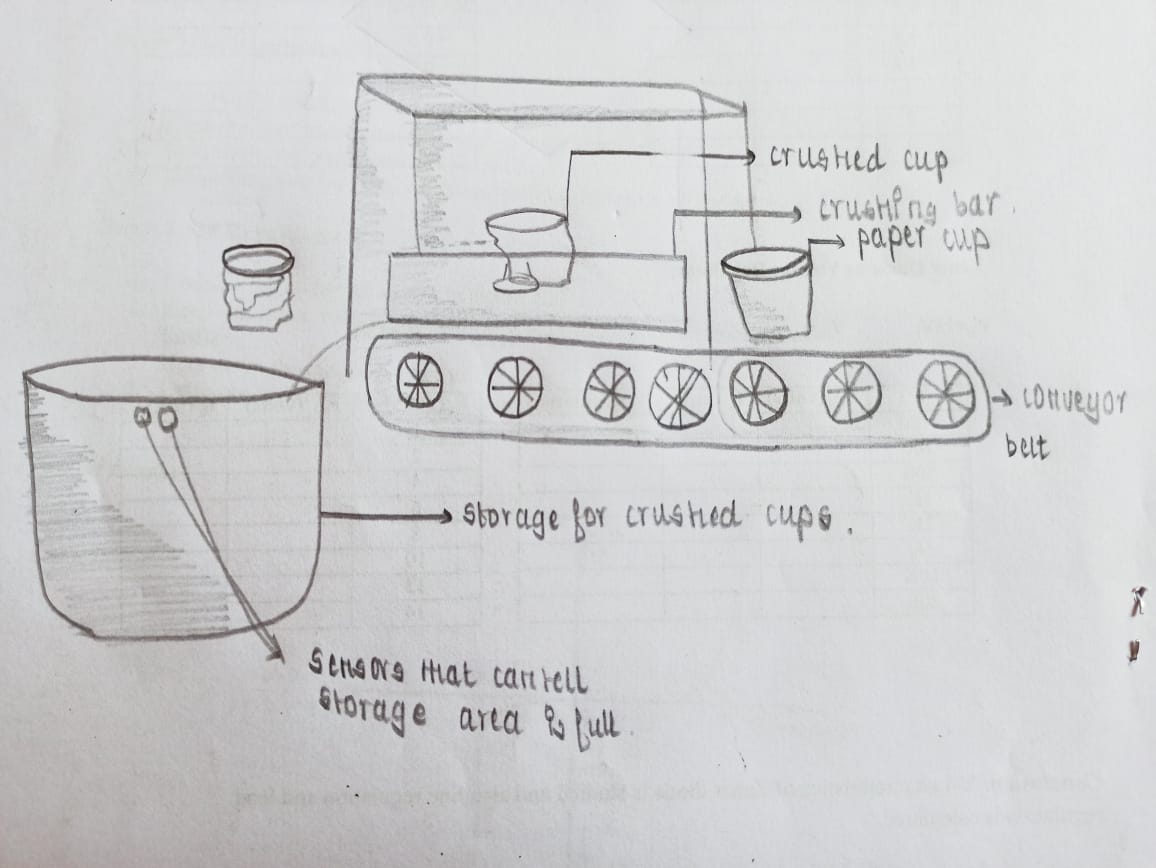 crushed cup
crushing bar.
paper cup
conveyor
belt
storage for crushed cups.
sensors that can tell
storage area is full.